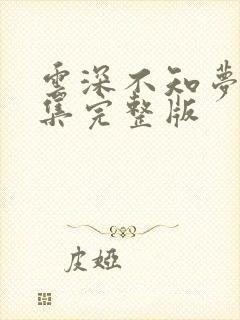 雲深不知夢
集完整版
皮婭